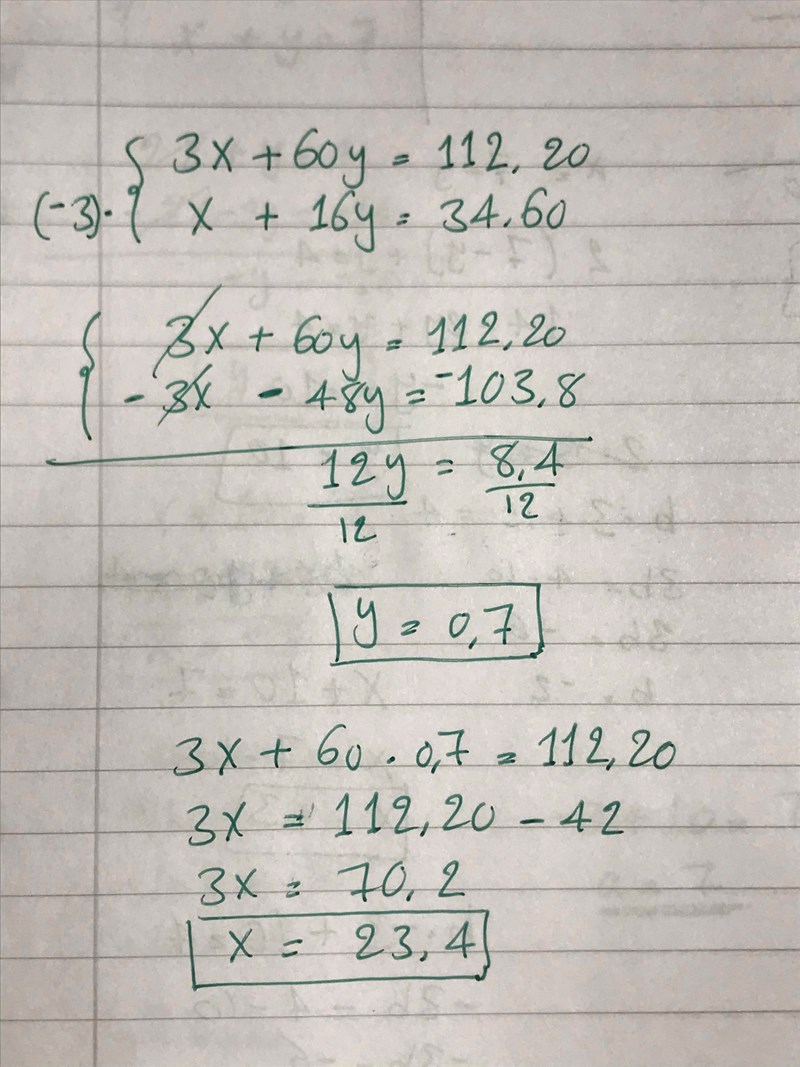 3x + 60y = 112,20
(-3)· x + 16y = 34.60
3x + 60y = 112,20
- 3x - 48y = -103,8
12y = 8,4
12 12
y = 0,7
3x + 60 · 0,7 = 112,20
3x = 112,20 - 42
3x = 70,2
x = 23,4